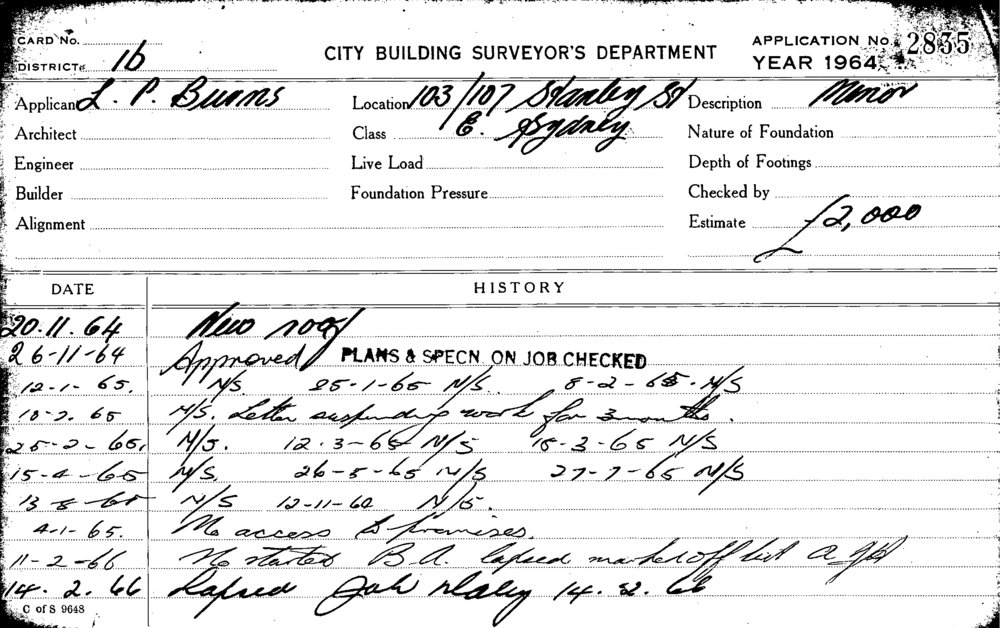 CARD No.
DISTRICT 1b
CITY BUILDING SURVEYOR'S DEPARTMENT
APPLICATION No. 2835
YEAR 1964
Applicant L. P. Burns
Location 103/107 Stanley St
Description Minor
Architect
Class E. Sydney
Nature of Foundation
Engineer
Live Load
Depth of Footings
Builder
Foundation Pressure
Checked by
Alignment
Estimate £2,000
DATE HISTORY
20.11.64 New roof
26-11-64 Approved PLANS & SPECN. ON JOB CHECKED
12-1-65. N/S. 25-1-65 N/S. 8-2-65. N/S
18-2.65 N/S. Letter suspending work for 3 months.
25-2-65. N/S. 12.3-65 N/S 18-3-65 N/S
15-4-65 N/S. 26-5-65 N/S 27-7-65 N/S
13-8-65 N/S 12-11-60 N/S.
4-1-65. No access to premises.
11-2-66 No started B.A. lapsed marked off list
14.2.66 Lapsed 14.2.66
C of S 9648